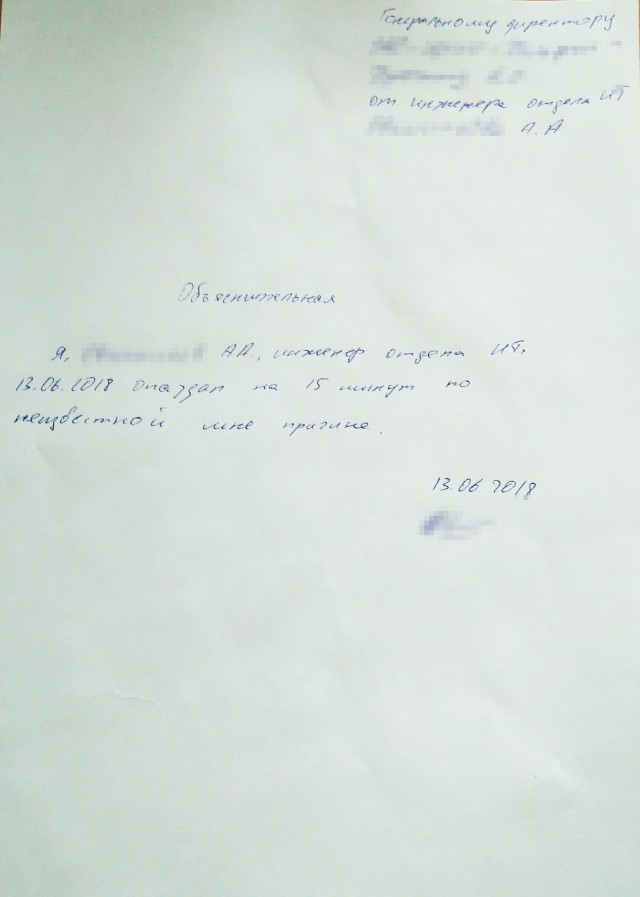 Генеральному директору
от инженера отдела ИТ
А.А
Объяснительная
Я, А.А., инженер отдела ИТ,
13.06.2018 опаздал на 15 минут по
неизвестной мне причине.
13.06.2018